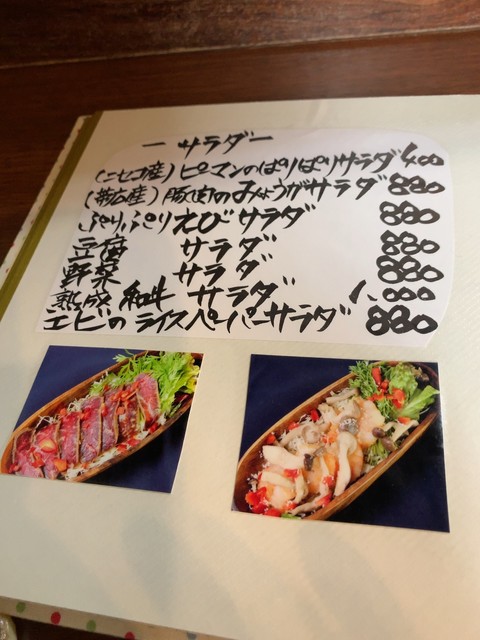 ー サラダー
(ニセコ産) ピーマンのぱりぱりサラダ 400
(帯広産) 豚肉のみょうがサラダ 880
ぷりぷりえびサラダ 880
豆腐 サラダ 880
野菜 サラダ 880
熟成 和牛 サラダ 1,000
エビのライスペーパーサラダ 880